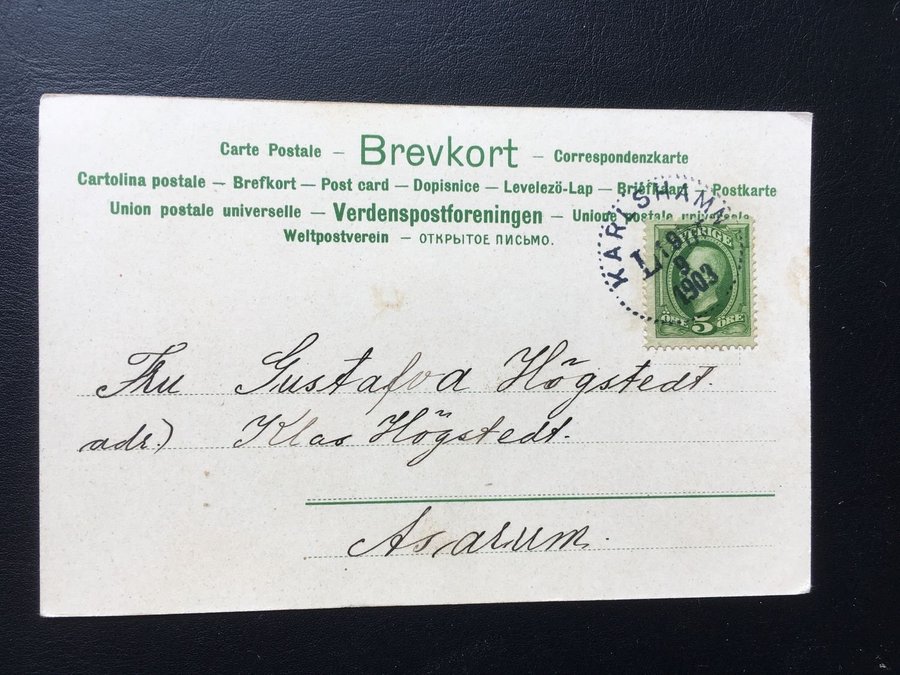 Carte Postale – Brevkort – Correspondenzkarte
Cartolina postale – Brefkort – Post card – Dopisnice – Levelezö-Lap – Briefkaart – Postkarte
Union postale universelle – Verdenspostforeningen – Unione postale universale
Weltpostverein – ОТКРЫТОЕ ПИСЬМО.
KARLSHAMN
19
9
1903
SVERIGE
ÖRE 5 ÖRE
Fru Gustafva Högstedt.
adr.) Klas Högstedt.
Asarum.